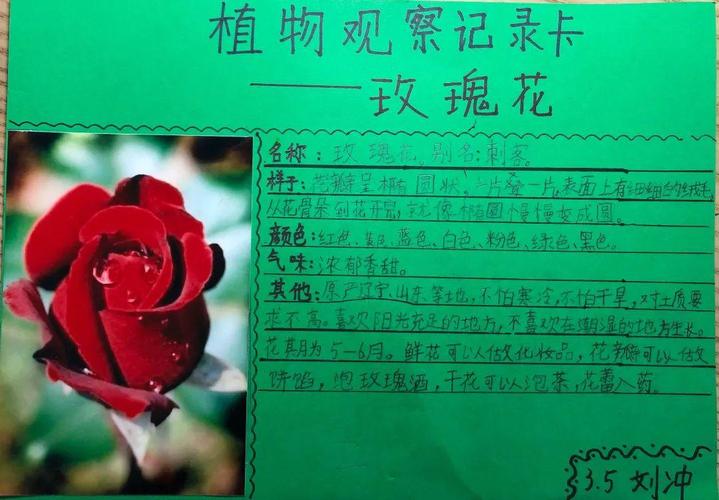 植物观察记录卡
——玫瑰花
名称：玫瑰花。别名：刺客。
样子：花瓣呈椭圆状。一片叠一片，表面上有细细的绒毛
从花骨朵到花开完，就像椭圆慢慢变成圆。
颜色：红色、黄色、蓝色、白色、粉色、绿色、黑色。
气味：浓郁香甜。
其他：原产辽宁、山东等地，不怕寒冷，不怕干旱，对土质要
求不高。喜欢阳光充足的地方，不喜欢在潮湿的地方生长。
花期为5—6月。鲜花可以做化妆品，花瓣可以做
饼馅，泡玫瑰酒，干花可以泡茶，花蕾入药。
3.5 刘冲